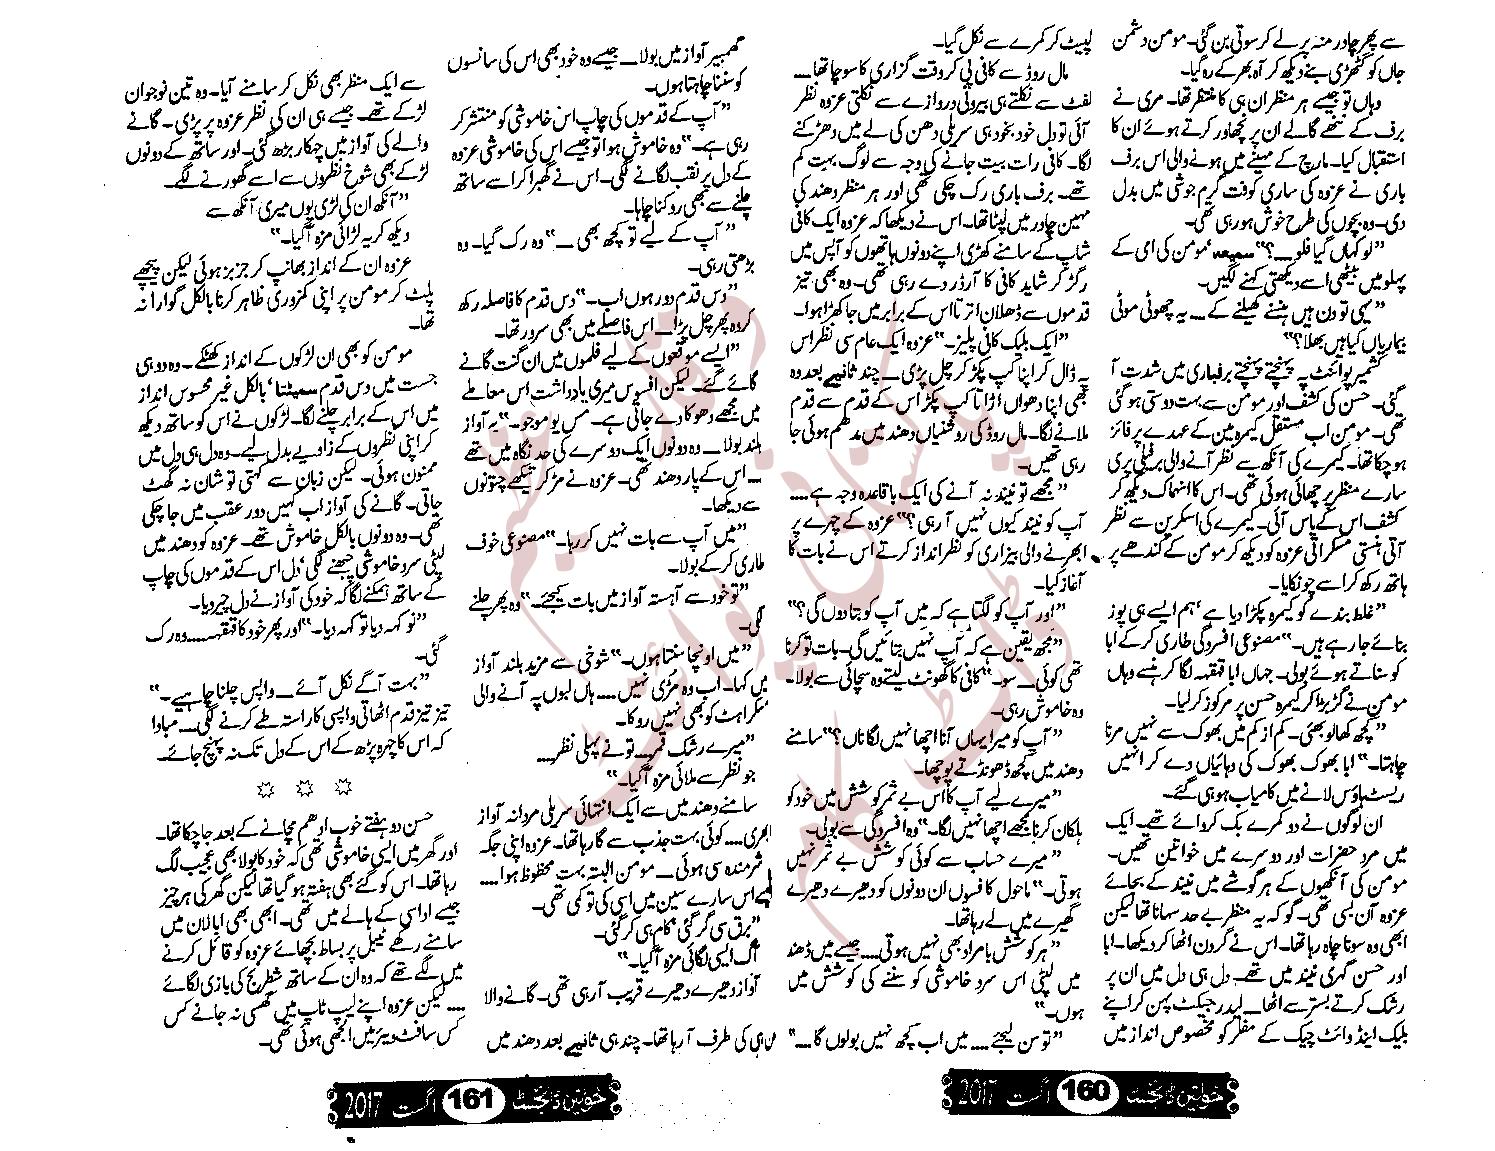 سے پھر چادر منہ پر لے کر سوتی بن گئی۔ مومن دشمن
جاں کو گٹھڑی بنے دیکھ کر آہ بھر کے رہ گیا۔
وہاں تو جیسے ہر منظر ان ہی کا منتظر تھا۔ مری نے
برف کے ننھے گالے ان پر نچھاور کرتے ہوئے ان کا
استقبال کیا۔ مارچ کے مہینے میں ہونے والی اس برف
باری نے عزوہ کی ساری کوفت گرم جوشی میں بدل
دی۔ وہ بچوں کی طرح خوش ہو رہی تھی۔
”لو کہاں گیا فلو ـــ؟“ سمیعہ‘ مومن کی امی کے
پہلو میں بیٹھی اسے دیکھتی کہنے لگیں۔
”یہی تو دن ہیں ہنسنے کھیلنے کے ـــ یہ چھوٹی موٹی
بیماریاں کیا ہیں بھلا؟“
کشمیر پوائنٹ پہ پہنچتے پہنچتے برفباری میں شدت آ
گئی۔ حسن کی کشف اور مومن سے بہت دوستی ہو گئی
تھی۔ مومن اب مستقل کیمرہ مین کے عہدے پر فائز
ہو چکا تھا۔ کیمرے کی آنکھ سے نظر آنے والی برفیلی پری
سارے منظر پر چھائی ہوئی تھی۔ اس کا انہماک دیکھ کر
کشف اس کے پاس آئی۔ کیمرے کی اسکرین سے نظر
آتی ہنستی مسکراتی عزوہ کو دیکھ کر مومن کے کندھے پر
ہاتھ رکھ کر اسے چونکایا۔
”غلط بندے کو کیمرہ پکڑا دیا ہے‘ ہم ایسے ہی پوز
بنائے جا رہے ہیں۔“ مصنوعی افسردگی طاری کر کے ابا
کو سناتے ہوئے بولی۔ جہاں ابا قہقہہ لگا کر ہنسے وہاں
مومن نے گڑبڑا کر کیمرہ حسن پر مرکوز کر لیا۔
”کچھ کھا لو بھئی۔ کم از کم میں بھوک سے نہیں مرنا
چاہتا۔“ ابا بھوک بھوک کی دہائیاں دے کر انہیں
ریسٹ ہاؤس لانے میں کامیاب ہو ہی گئے۔
ان لوگوں نے دو کمرے بک کروائے تھے۔ ایک
میں مرد حضرات اور دوسرے میں خواتین تھیں۔
مومن کی آنکھوں کے ہر گوشے میں نیند کے بجائے
عزوہ آن بسی تھی۔ گو کہ یہ منظر بے حد سہانا تھا لیکن
ابھی وہ سونا چاہ رہا تھا۔ اس نے گردن اٹھا کر دیکھا۔ ابا
اور حسن گہری نیند میں تھے۔ دل ہی دل میں ان پر
رشک کرتے بستر سے اٹھا۔ لیدر جیکٹ پہن کر اپنے
بلیک اینڈ وائٹ چیک کے مفلر کو مخصوص انداز میں
لپیٹ کر کمرے سے نکل گیا۔
مال روڈ سے کافی پی کر وقت گزاری کا سوچا تھا ـــ
لفٹ سے نکلتے ہی بیرونی دروازے سے نکلتی عزوہ نظر
آئی تو دل خود بخود ہی سریلی دھن کی لے میں دھڑکنے
لگا۔ کافی رات بیت جانے کی وجہ سے لوگ بہت کم
تھے۔ برف باری رک چکی تھی اور ہر منظر دھند کی
مہین چادر میں لپٹا تھا۔ اس نے دیکھا کہ عزوہ ایک کافی
شاپ کے سامنے کھڑی اپنے دونوں ہاتھوں کو آپس میں
رگڑ کر شاید کافی کا آرڈر دے رہی تھی۔ وہ بھی تیز
قدموں سے ڈھلان اترتا اس کے برابر میں جا کھڑا ہوا۔
”ایک بلیک کافی پلیز۔“ عزوہ ایک عام سی نظر اس
پہ ڈال کر اپنا کپ پکڑ کر چل پڑی ـــ چند ثانیے بعد وہ
بھی اپنا دھواں اڑاتا کپ پکڑ اس کے قدم سے قدم
ملانے لگا۔ مال روڈ کی روشنیاں دھند میں مدھم ہوئی جا
رہی تھیں۔
”مجھے تو نیند نہ آنے کی ایک باقاعدہ وجہ ہے ....
آپ کو نیند کیوں نہیں آ رہی؟“ عزوہ کے چہرے پر
ابھرنے والی بیزاری کو نظر انداز کرتے اس نے بات کا
آغاز کیا۔
”اور آپ کو لگتا ہے کہ میں آپ کو بتا دوں گی؟“
”مجھے یقین ہے کہ آپ نہیں بتائیں گی۔ بات تو کرنا
تھی کوئی ـــ سو۔“ کافی کا گھونٹ لیتے وہ سچائی سے بولا۔
وہ خاموش رہی۔
”آپ کو میرا یہاں آنا اچھا نہیں لگا ناں؟“ سامنے
دھند میں کچھ ڈھونڈتے پوچھا۔
”میرے لیے آپ کا اس بے ثمر کوشش میں خود کو
ہلکان کرنا مجھے اچھا نہیں لگا۔“ وہ افسردگی سے بولی۔
”میرے حساب سے کوئی کوشش بے ثمر نہیں
ہوتی۔“ ماحول کا فسوں ان دونوں کو دھیرے دھیرے
گھیرے میں لے رہا تھا۔
”ہر کوشش بامراد بھی نہیں ہوتی .... جیسے میں دھند
میں لپٹی اس سرد خاموشی کو سننے کی کوشش میں
ہوں۔“
”تو سن لیجئے .... میں اب کچھ نہیں بولوں گا ....“
خواتین ڈائجسٹ 160 اگست 2017
گھمبیر آواز میں بولا ـــ جیسے وہ خود بھی اس کی سانسوں
کو سننا چاہتا ہوں۔
”آپ کے قدموں کی چاپ اس خاموشی کو منتشر کر
رہی ہے۔“ وہ خاموش ہوا تو جیسے اس کی خاموشی عزوہ
کے دل پر نقب لگانے لگی۔ اس نے گھبرا کر اسے ساتھ
چلنے سے بھی روکنا چاہا۔
”آپ کے لیے تو کچھ بھی ـــ“ وہ رک گیا۔ وہ
بڑھتی رہی۔
”دس قدم دور ہوں اب۔“ دس قدم کا فاصلہ رکھ
کر وہ پھر چل پڑا ـــ اس فاصلے میں بھی سرور تھا۔
”ایسے موقعوں کے لیے فلموں میں ان گنت گانے
گائے گئے۔ لیکن افسوس میری یادداشت اس معاملے
میں مجھے دھوکا دے جاتی ہے۔ مس یو موجو۔“ بہ آواز
بلند بولا ـــ وہ دونوں ایک دوسرے کی حد نگاہ میں تھے
ـــ اس کے پار دھند تھی۔ عزوہ نے مڑ کر تیکھے چتونوں
سے دیکھا۔
”میں آپ سے بات نہیں کر رہا۔“ مصنوعی خوف
طاری کر کے بولا۔
”تو خود سے آہستہ آواز میں بات کیجئے۔“ وہ پھر چلنے
لگی۔
”میں اونچا سنتا ہوں۔“ شوخی سے مزید بلند آواز
میں کہا۔ اب وہ مڑی نہیں .... ہاں لبوں پہ آنے والی
مسکراہٹ کو بھی نہیں روکا۔
”میرے رشک قمر تو نے پہلی نظر ....
جو نظر سے ملائی مزہ آ گیا۔“
سامنے دھند میں سے ایک انتہائی سریلی مردانہ آواز
ابھری .... کوئی بہت جذب سے گا رہا تھا۔ عزوہ اپنی جگہ
شرمندہ سی ہوئی ـــ مومن البتہ بہت محظوظ ہوا ....
اسے اس سارے سین میں اسی کی تو کمی تھی۔
”برق سی گر گئی‘ کام ہی کر گئی۔
آگ ایسی لگائی مزہ آ گیا۔“
آواز دھیرے دھیرے قریب آ رہی تھی۔ گانے والا
ان ہی کی طرف آ رہا تھا۔ چند ہی ثانیے بعد دھند میں
سے ایک منظر بھی نکل کر سامنے آیا۔ وہ تین نوجوان
لڑکے تھے۔ جیسے ہی ان کی نظر عزوہ پر پڑی۔ گانے
والے کی آواز میں چہکار بڑھ گئی۔ اور ساتھ کے دونوں
لڑکے بھی شوخ نظروں سے اسے گھورنے لگے۔
”آنکھ ان کی لڑی یوں میری آنکھ سے
دیکھ کر یہ لڑائی مزہ آ گیا۔“
عزوہ ان کے انداز بھانپ کر جزبز ہوئی لیکن پیچھے
پلٹ کر مومن پر اپنی کمزوری ظاہر کرنا بالکل گوارا نہ
تھا۔
مومن کو بھی ان لڑکوں کے انداز کھٹکے۔ وہ دو ہی
جست میں دس قدم سمیٹتا‘ بالکل غیر محسوس انداز
میں اس کے برابر چلنے لگا۔ لڑکوں نے اس کو ساتھ دیکھ
کر اپنی نظروں کے زاویے بدل لیے۔ وہ دل ہی دل میں
ممنون ہوئی۔ لیکن زبان سے کہتی تو شان نہ گھٹ
جاتی۔ گانے کی آواز اب کہیں دور عقب میں جا چکی
تھی۔ وہ دونوں بالکل خاموش تھے۔ عزوہ کو دھند میں
لپٹی سرد خاموشی چبھنے لگی‘ دل اس کے قدموں کی چاپ
کے ساتھ ہمکنے لگا کہ خود کی آواز نے دل چیر دیا۔
”تو کہہ دیا تو کہہ دیا۔“ اور پھر خود کا قہقہہ .... وہ رک
گئی۔
”بہت آگے نکل آئے ـــ واپس چلنا چاہیے۔“
تیز تیز قدم اٹھاتی واپسی کا راستہ طے کرنے لگی ـــ مبادا
کہ اس کا چہرہ پڑھ کے اس کے دل تک نہ پہنچ جائے۔
☼ ☼ ☼
حسن دو ہفتے خوب ادھم مچانے کے بعد جا چکا تھا۔
اور گھر میں ایسی خاموشی تھی کہ خود کا بولا بھی عجیب لگ
رہا تھا۔ اس کو گئے بھی ہفتہ ہو گیا تھا لیکن گھر کی ہر چیز
جیسے اداسی کے ہالے میں تھی۔ ابھی بھی ابا لان میں
سامنے رکھے ٹیبل پر بساط بچھائے عزوہ کو قائل کرنے
میں لگے تھے کہ وہ ان کے ساتھ شطرنج کی بازی لگائے
.... لیکن عزوہ اپنے لیپ ٹاپ میں گھسی نہ جانے کس
کس سافٹ ویئر میں الجھی ہوئی تھی۔
خواتین ڈائجسٹ 161 اگست 2017